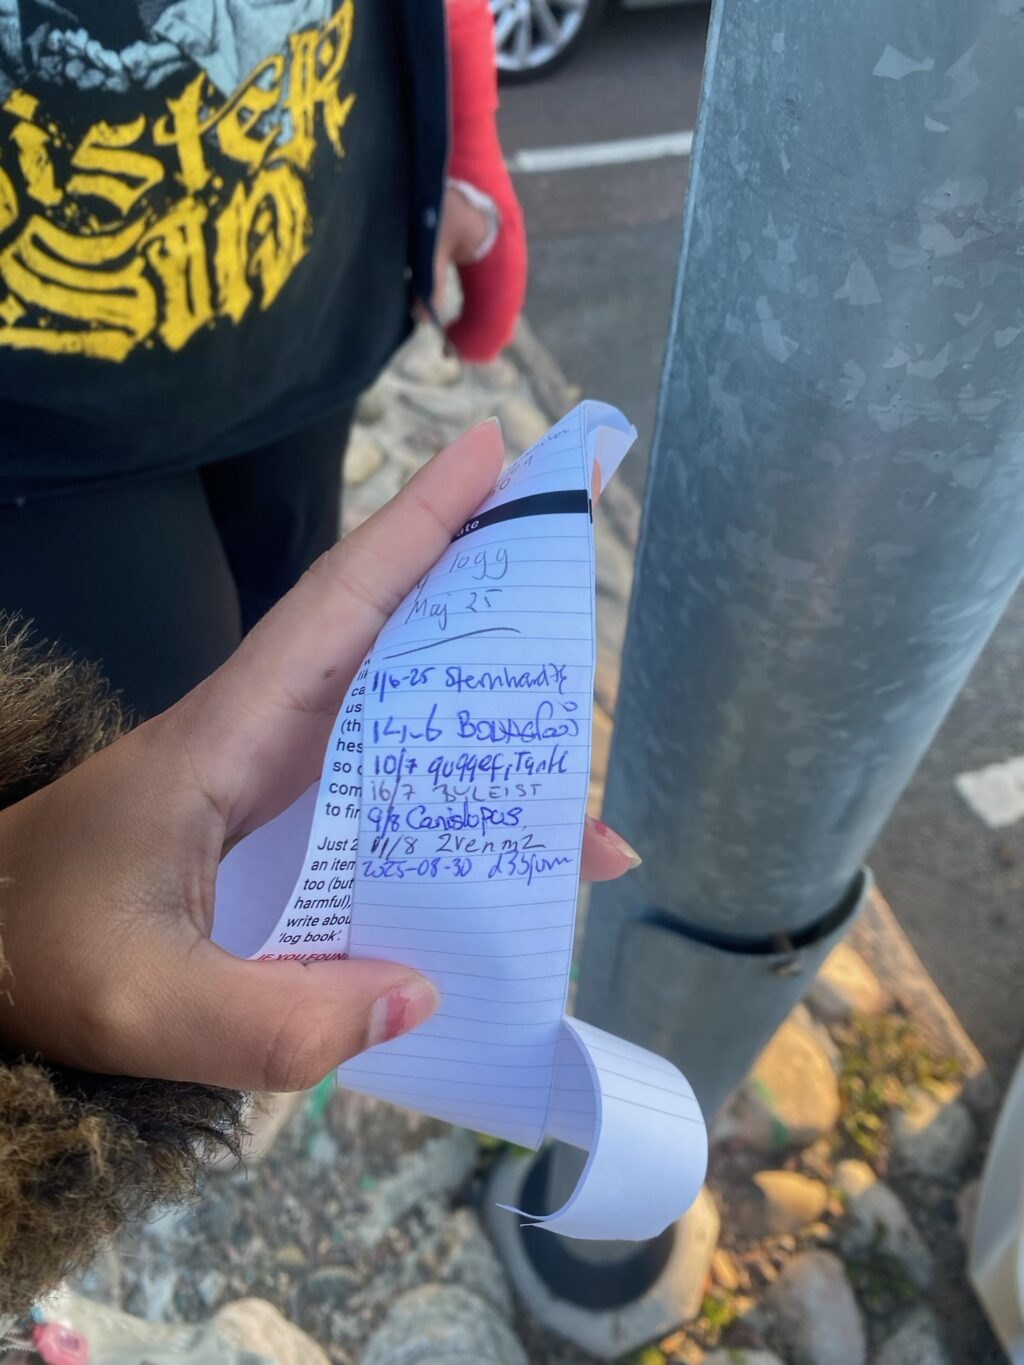 Sister
Sin
ate
logg
Maj 25
1/6-25 Sternhardt
14-6
10/7 guggef, Tantt
16/7 BYLEIST
9/8 Canislupus
11/8 2venm2
2025-08-30 d35prm
us
(th
hes
so
com
to fin
Just 2
an item
too (but
harmful),
write abou
'log book'.
IF YOU FOUN